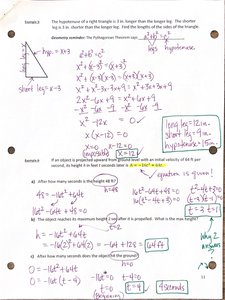 Example 4
The hypotenuse of a right triangle is 3 in. longer than the longer leg. The shorter
leg is 3 in. shorter than the longer leg. Find the lengths of the sides of the triangle.
Geometry reminder: The Pythagorean Theorem says a²+b²=c²
legs hypotenuse
hyp. = x+3
short leg = x-3
a²+b² = c²
x²+(x-3)² = (x+3)²
x²+(x-3)(x-3) = (x+3)(x+3)
x²+x²-3x-3x+9 = x²+3x+3x+9
2x²-6x+9 = x²+6x+9
x²-12x = 0
x(x-12) = 0
x=0 x-12=0
(impossible) x=12
long leg = 12 in.
short leg = 9 in.
hypotenuse = 15 in.
If an object is projected upward from ground level with an initial velocity of 64 ft per
second, its height h in feet t seconds later is h = -16t² + 64t.
equation is given!
a) After how many seconds is the height 48 ft?
h=48
48 = -16t²+64t
16t²-64t+48=0
t²-4t+3=0
(t-3)(t-1)=0
t=3 t=1
Why 2
answers
b) The object reaches its maximum height 2 sec after it is propelled. What is the max height?
t=2
h = -16t²+64t
= -16(2)²+64(2) = -64+128 = 64 ft
c) After how many seconds does the object hit the ground?
h=0
0 = -16t²+64t
0 = -16t(t-4)
-16t=0 t-4=0
t=0 t=4
(beginning)
4 seconds